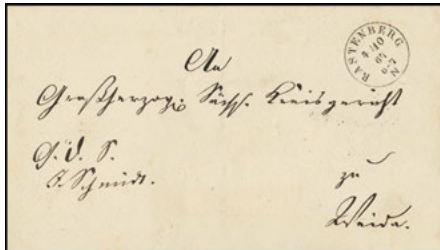 RASTENBERG
4/10
67
N
An
Großherzog. Sächs. Kreisgericht
G. d. S.
J. Schmidt.
zu
Weida.